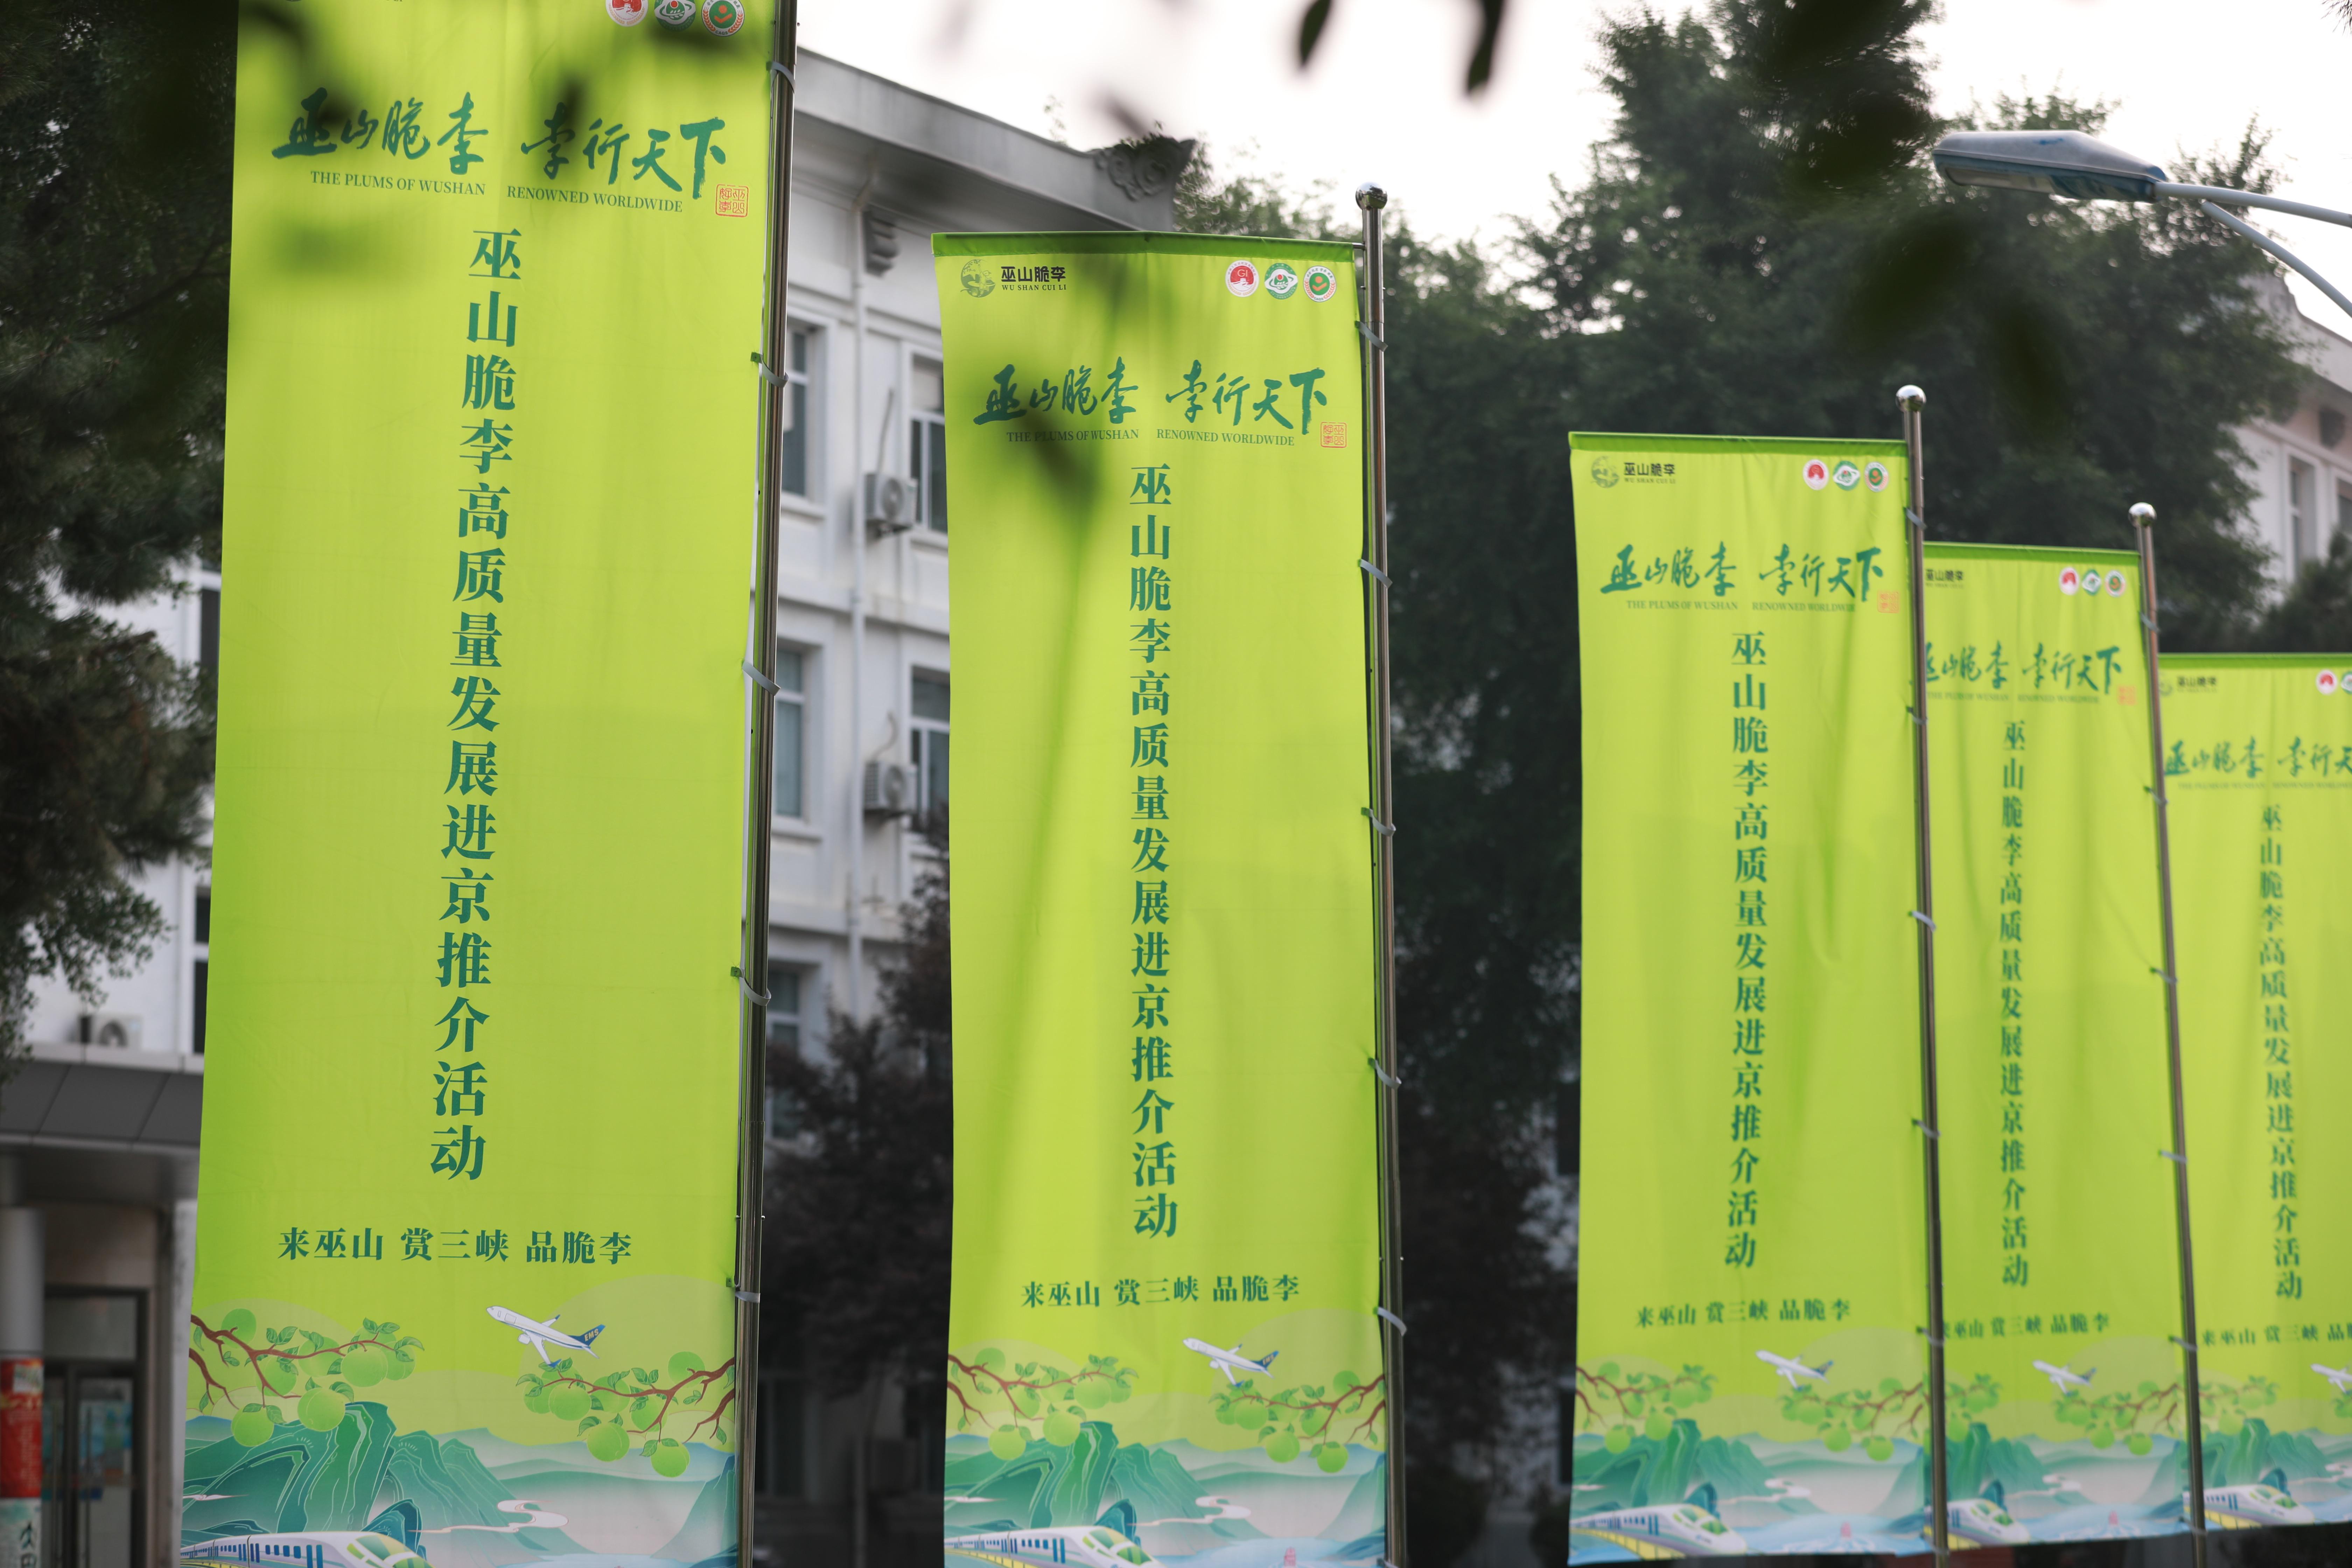 巫山脆李 李行天下
THE PLUMS OF WUSHAN RENOWNED WORLDWIDE
巫山脆李高质量发展进京推介活动
来巫山 赏三峡 品脆李
EMS
巫山脆李
WU SHAN CUI LI
巫山脆李 李行天下
THE PLUMS OF WUSHAN RENOWNED WORLDWIDE
巫山脆李高质量发展进京推介活动
来巫山 赏三峡 品脆李
巫山脆李
WU SHAN CUI LI
巫山脆李 李行天下
THE PLUMS OF WUSHAN RENOWNED WORLDWIDE
巫山脆李高质量发展进京推介活动
来巫山 赏三峡 品脆李
巫山脆李
巫山脆李 李行天下
THE PLUMS OF WUSHAN RENOWNED WORLDWIDE
巫山脆李高质量发展进京推介活动
来巫山 赏三峡 品脆李
巫山脆李
巫山脆李 李行天
巫山脆李高质量发展进京推介活动
来巫山 赏三峡 品脆